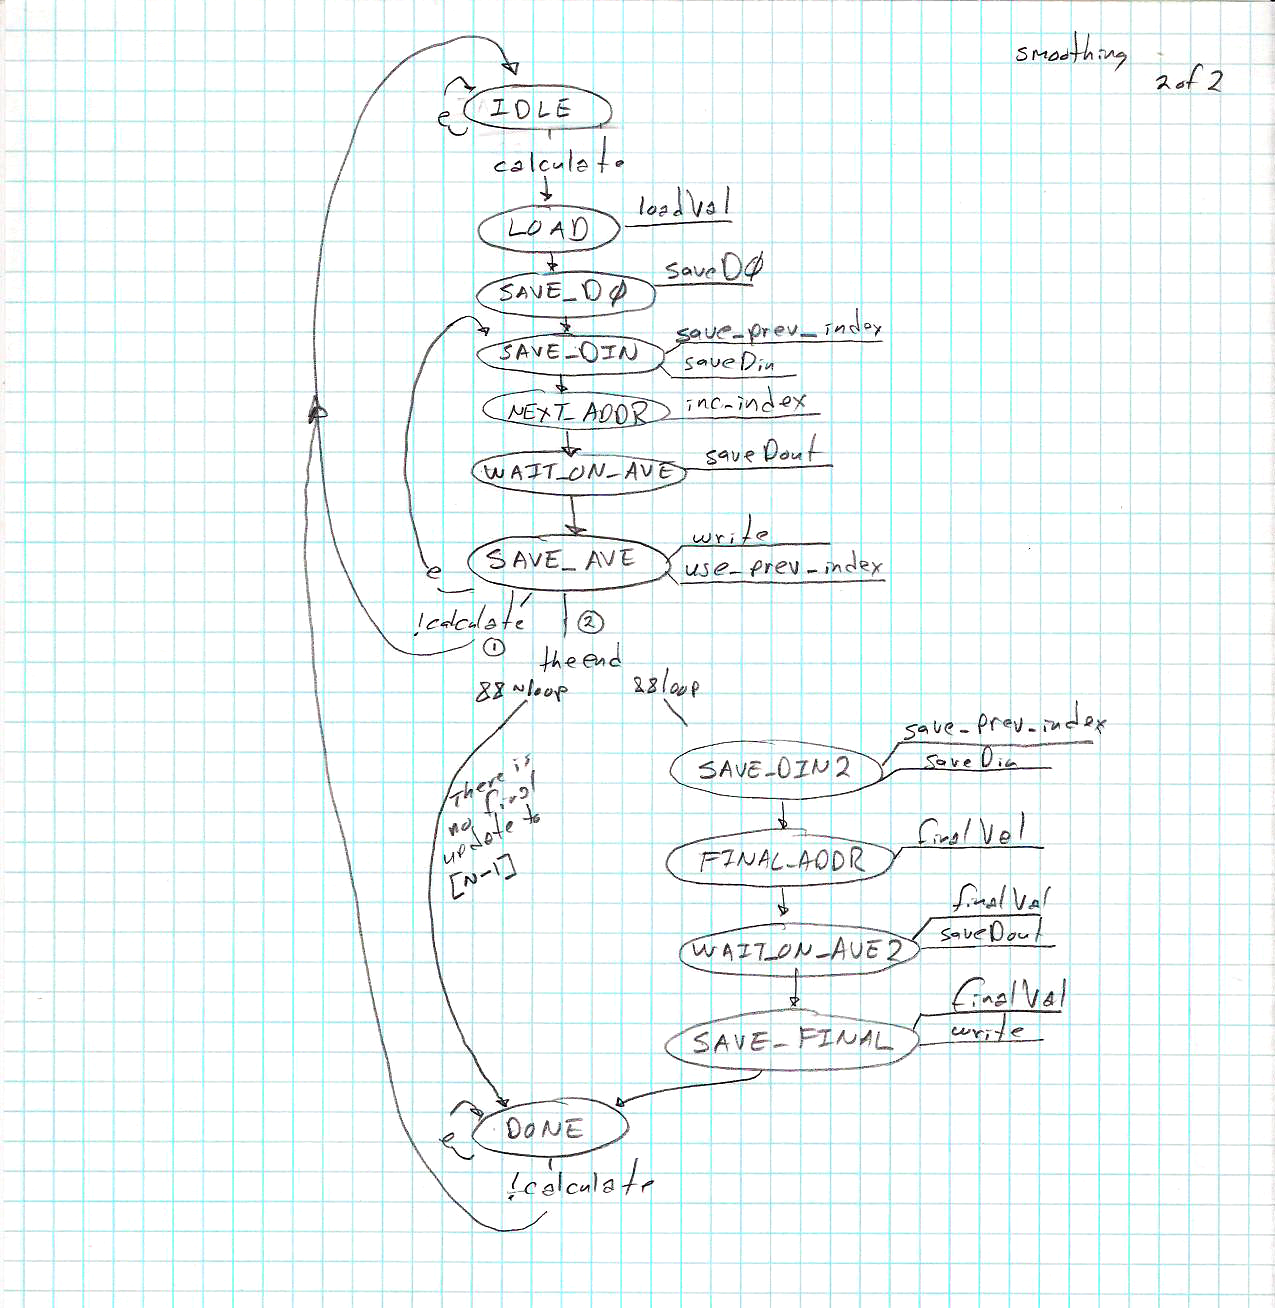 smoothing
2 of 2
e
IDLE
calculate
LOAD
loadVal
SAVE_DØ
saveDØ
SAVE_DIN
save_prev_index
saveDin
NEXT_ADDR
inc_index
WAIT_ON_AVE
saveDout
SAVE_AVE
write
use_prev_index
e
!calculate
①
②
the end
&& ~loop
&& loop
There is
no final
update to
[N-1]
SAVE_DIN2
save_prev_index
saveDin
FINAL_ADDR
finalVal
WAIT_ON_AVE2
finalVal
saveDout
SAVE_FINAL
finalVal
write
e
DONE
!calculate